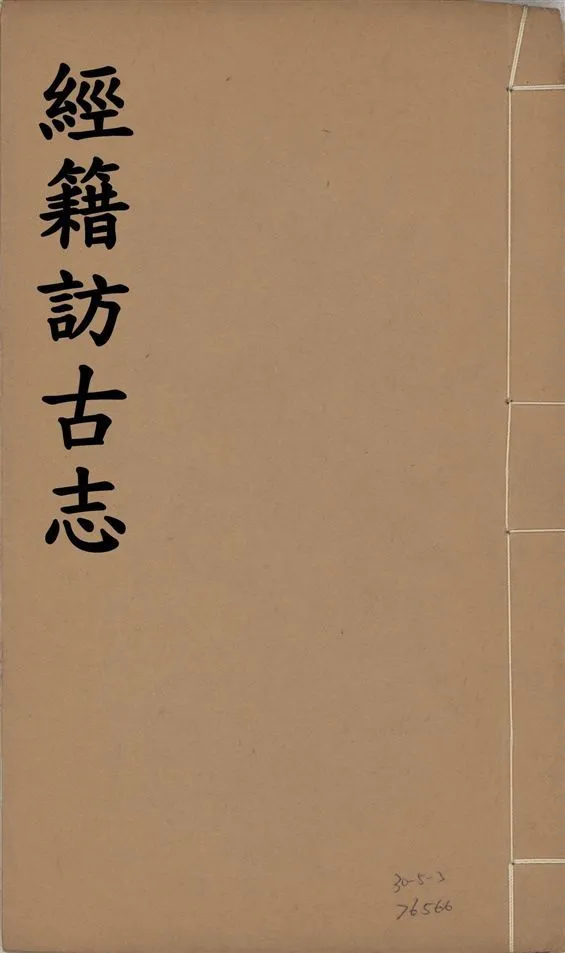 經籍訪古志
30-5-3
76566